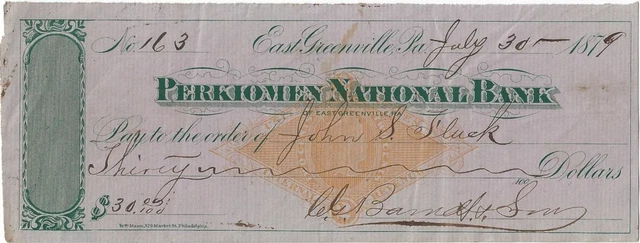 No. 163 East Greenville, Pa. July 30 1879
PERKIOMEN NATIONAL BANK
OF EAST GREENVILLE, PA.
Pay to the order of John S. Fluck
Thirty 100 Dollars
$30.00/100 & Son